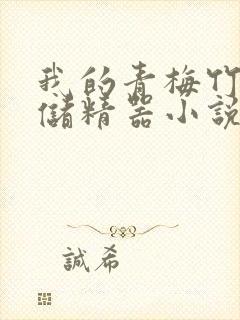 我的青梅竹
儲精器小說
誠希